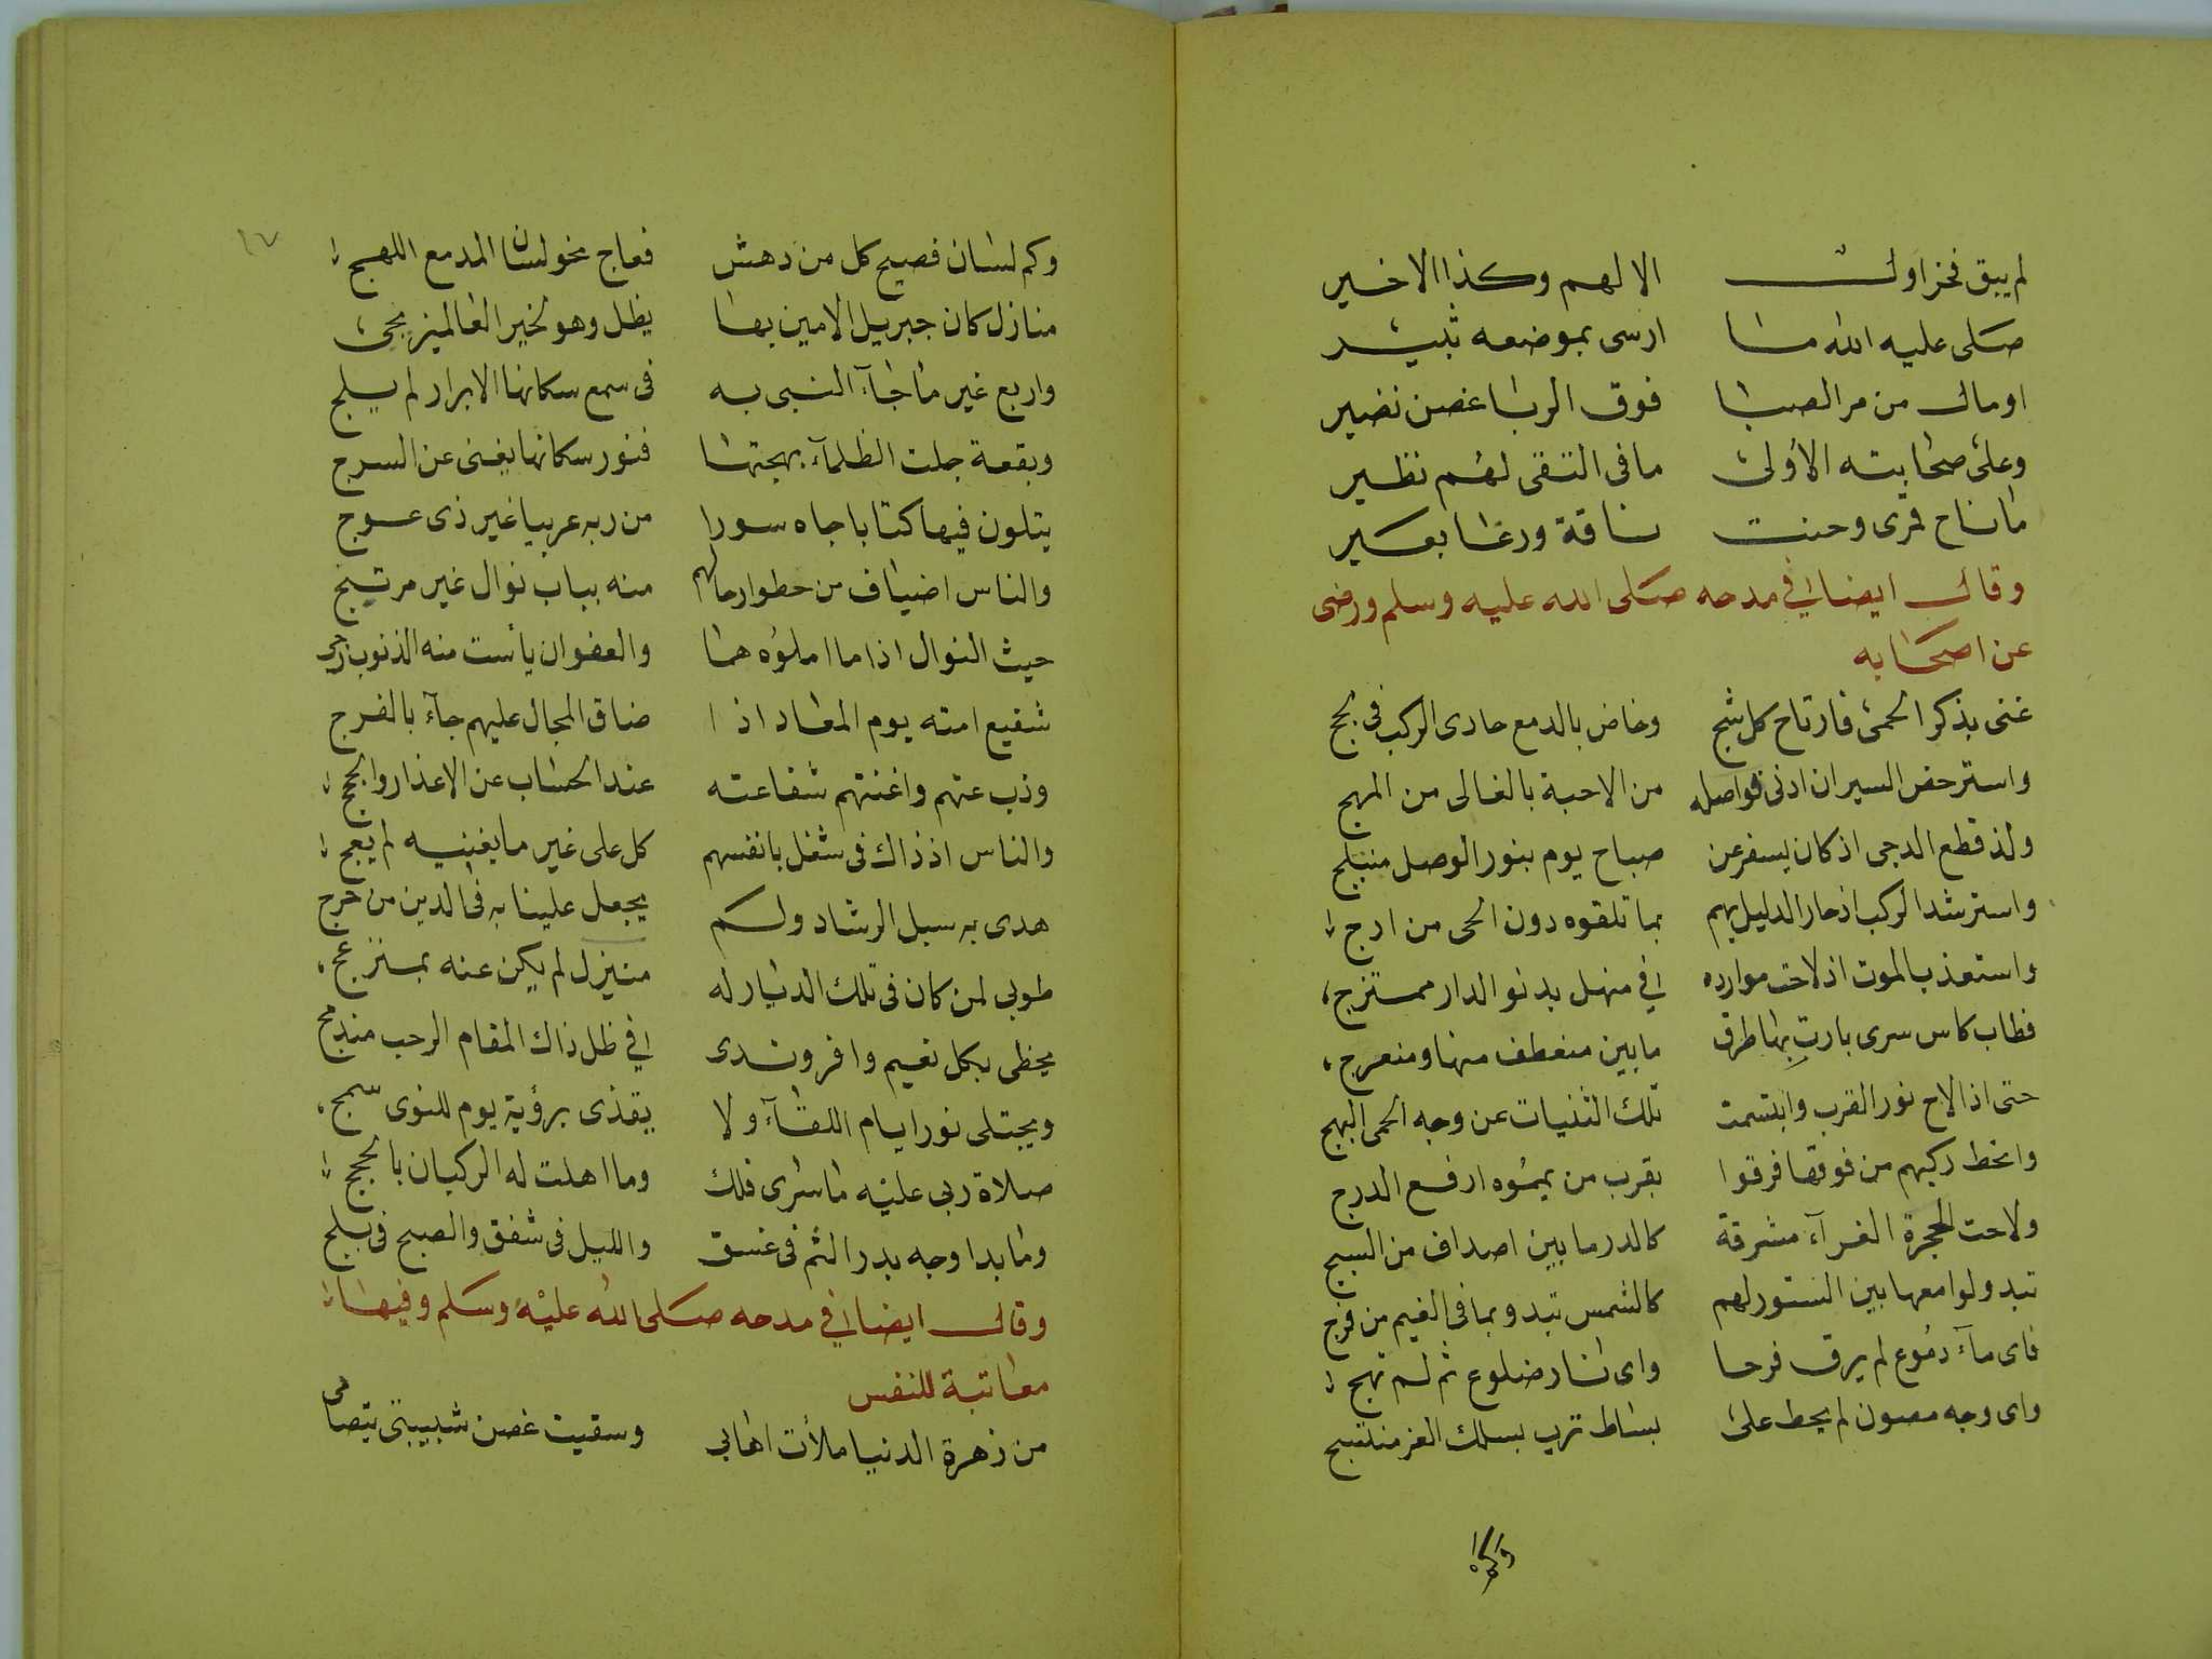 لم يبق فخرا اولـــ الا لهم وكذا الاخير
صلى عليه الله ما ارسى بموضعه ثبير
او مالـ من مر الصبا فوق الربا غصن نضير
وعلى صحابته الأولى ما فى التقى لهم نظير
ما ناح قمرى وحنت ناقة ورغا بعير
وقالـ ايضا فى مدحه صلى الله عليه وسلم ورضى
عن اصحابه
غنى بذكر الحمى فارتاح كل شج وخاض بالدمع حادى الركب فى لجج
واسترخص السير ان ادنى فواصله من الاحبة بالغالى من المهج
ولذ قطع الدجى اذ كان يسفر عن صباح يوم بنور الوصل منبلج
واسترشد الركب اذ حار الدليل بهم بما تلقوه دون الحى من ارج
واستعذب الموت اذ لاحت موارده فى منهل بدنو الدار ممتزج
فطاب كاس سرى بارت بها طرق ما بين منعطف منها ومنعرج
حتى اذا لاح نور القرب وابتسمت تلك الثنيات عن وجه الحمى البهج
وانحط ركبهم من فوقها فرقوا بقرب من يمموه ارفع الدرج
ولاحت الحجرة الغرآء مشرقة كالدر ما بين اصداف من السبج
تبدو لوامعها بين الستور لهم كالشمس تبدو بما فى الغيم من فرج
فاى مآء دموع لم يرق فرحا واى نار ضلوع ثم لم تهج
واى وجه مصون لم يحط على بساط ترب بسلك العز منتسج
وكم
١٧
وكم لسان فصيح كل من دهش فعاج نحو لسان المدمع اللهج
منازل كان جبريل الامين بها يظل وهو لخير العالمين يجى
واربع غير ما جآء النبى به فى سمع سكانها الابرار لم يلج
وبقعة جلت الظلمآء بهجتها فنور سكانها يغنى عن السرج
يتلون فيها كتابا جاه سورا من ربه عربيا غير ذى عوج
والناس اضياف من حطوا رحالهم منه بباب نوال غير مرتتج
حيث النوال اذا ما املوه هما والعفو ان يأست منه الذنوب رجى
شفيع امته يوم المعاد اذا ضاق المجال عليهم جآء بالفرج
وذب عنهم واغنتهم شفاعته عند الحساب عن الاعذار والحجج
والناس اذ ذاك فى شغل بانفسهم كل على غير ما يعنيه لم يعج
هدى به سبل الرشاد ولم يجعل علينا به فى الدين من حرج
طوبى لمن كان فى تلك الديار له منزل لم يكن عنه بمنزعج
يحظى بكل نعيم وافر وندى فى ظل ذاك المقام الرحب مندمج
ويجتلى نور ايام اللقآء ولا يقذى برؤية يوم للنوى سمج
صلاة ربى عليه ما سرى فلك وما اهلت له الركبان بالحجج
وما بدا وجه بدر التم فى غسق والليل فى شفق والصبح فى بلج
وقالـ ايضا فى مدحه صلى الله عليه وسلم وفيها
معاتبة للنفس
من زهرة الدنيا ملأت اهابى وسقيت غصن شبيبتى بتصابى